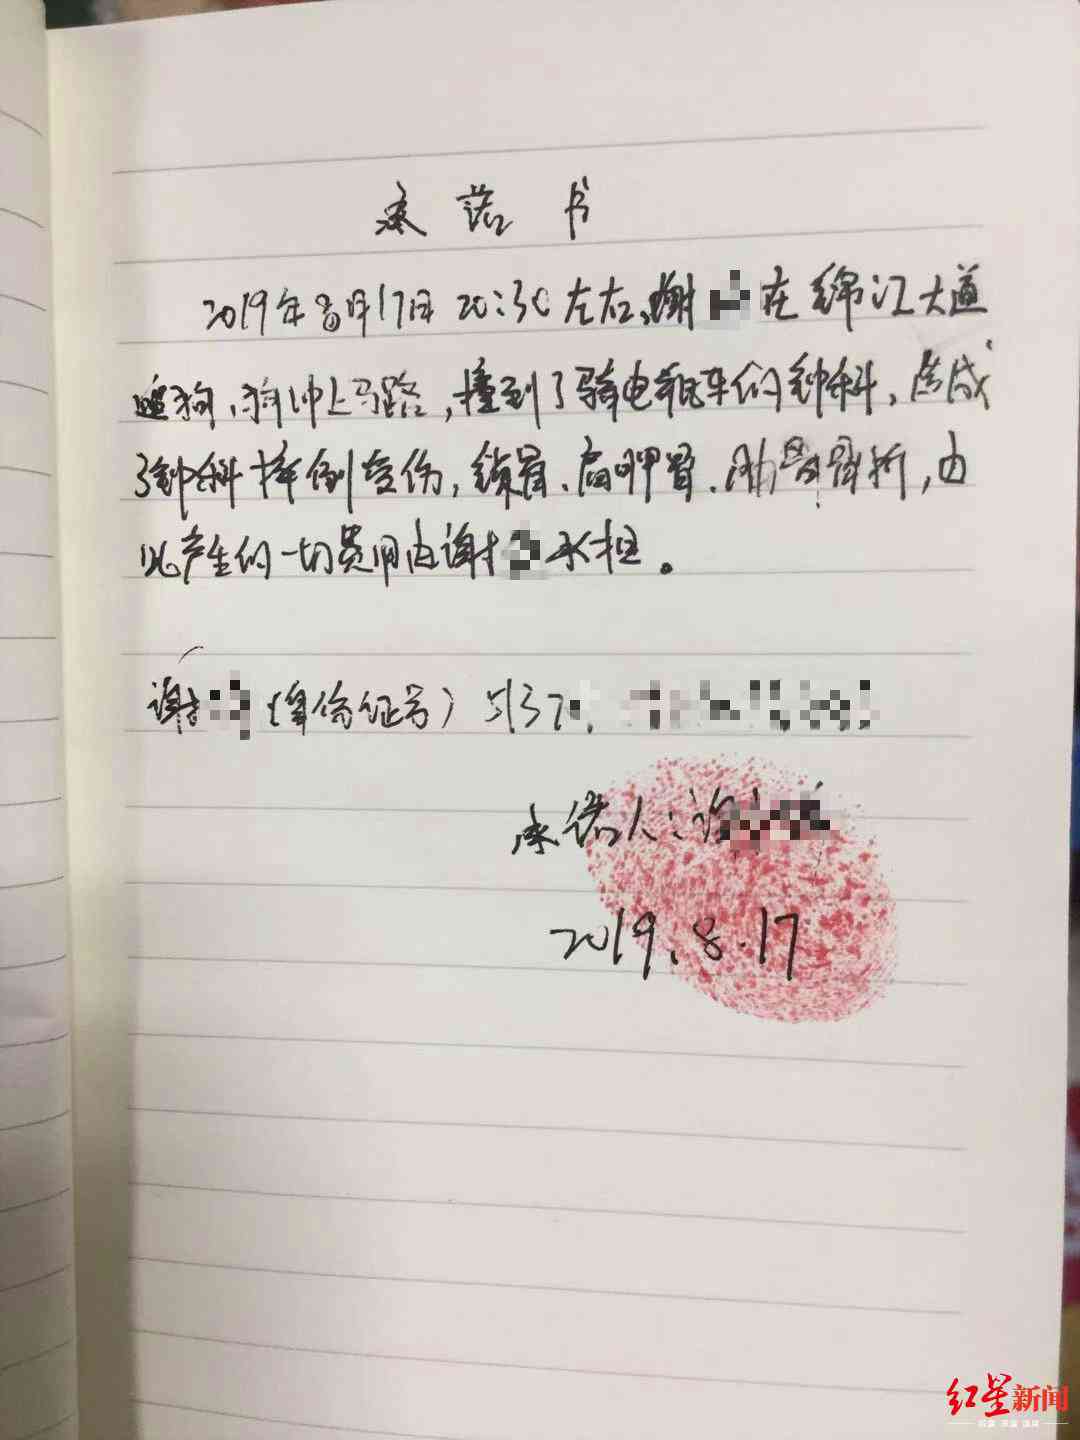 承诺书
2019年8月17日20:30左右,谢 在绵江大道
遛狗,狗冲上马路,撞到了骑电瓶车的钟科,造成
了钟科摔倒受伤,锁骨、肩胛骨、肋骨骨折,由
此产生的一切费用由谢 承担。
谢 (身份证号) 5137
承诺人:谢
2019.8.17
红星新闻